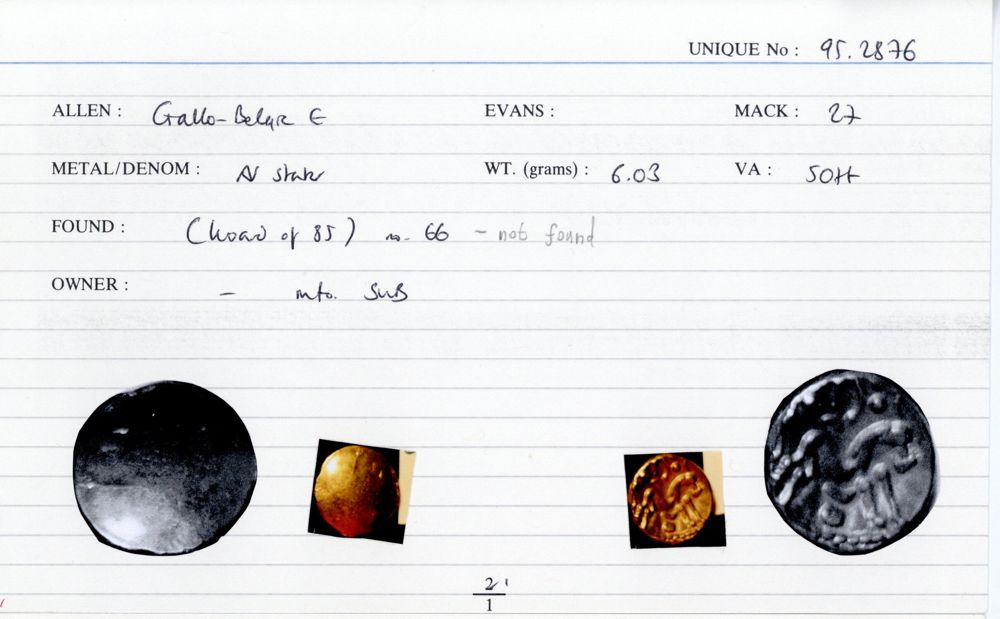 UNIQUE No : 95.2876
ALLEN : Gallo-Belgic E EVANS : MACK : 27
METAL/DENOM : AV stater WT. (grams) : 6.03 VA :
FOUND : (hoard of 85) no. 66 - not found
OWNER : - info. SUB
2
1